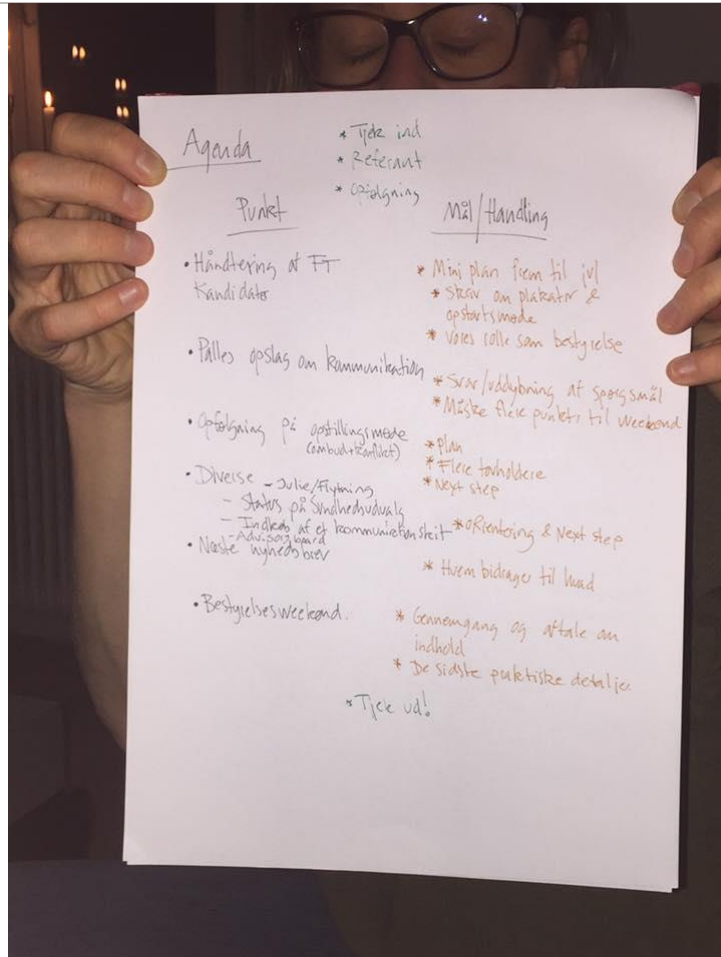 Agenda
* Tjek ind
* Referant
* Opfølgning
Punkt
Mål/Handling
• Håndtering af FT
Kandidater
* Mini plan frem til jul
* Skriv om plakater &
opstartsmøde
* Vores rolle som bestyrelse
• Palles opslag om kommunikation
* Svar/uddybning af spørgsmål
* Måske flere punkter til weekend
• Opfølgning på opstillingsmøde
(ombud+konflikt)
* Plan
* Flere tovholdere
* Next step
• Diverse - Julie/Flytning
- Status på Sundhedsudvalg
- Indkøb af et kommunikationskit
- Advisory board
* ORientering & Next step
• Næste nyhedsbrev
* Hvem bidrager til hvad
• Bestyrelsesweekend.
* Gennemgang og aftale om
indhold
* De sidste praktiske detaljer
* Tjek ud!